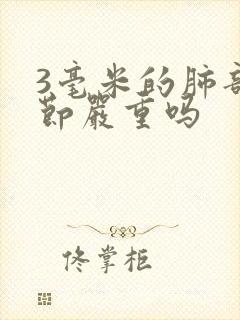 3毫米的肺部
節嚴重吗
佟掌柜